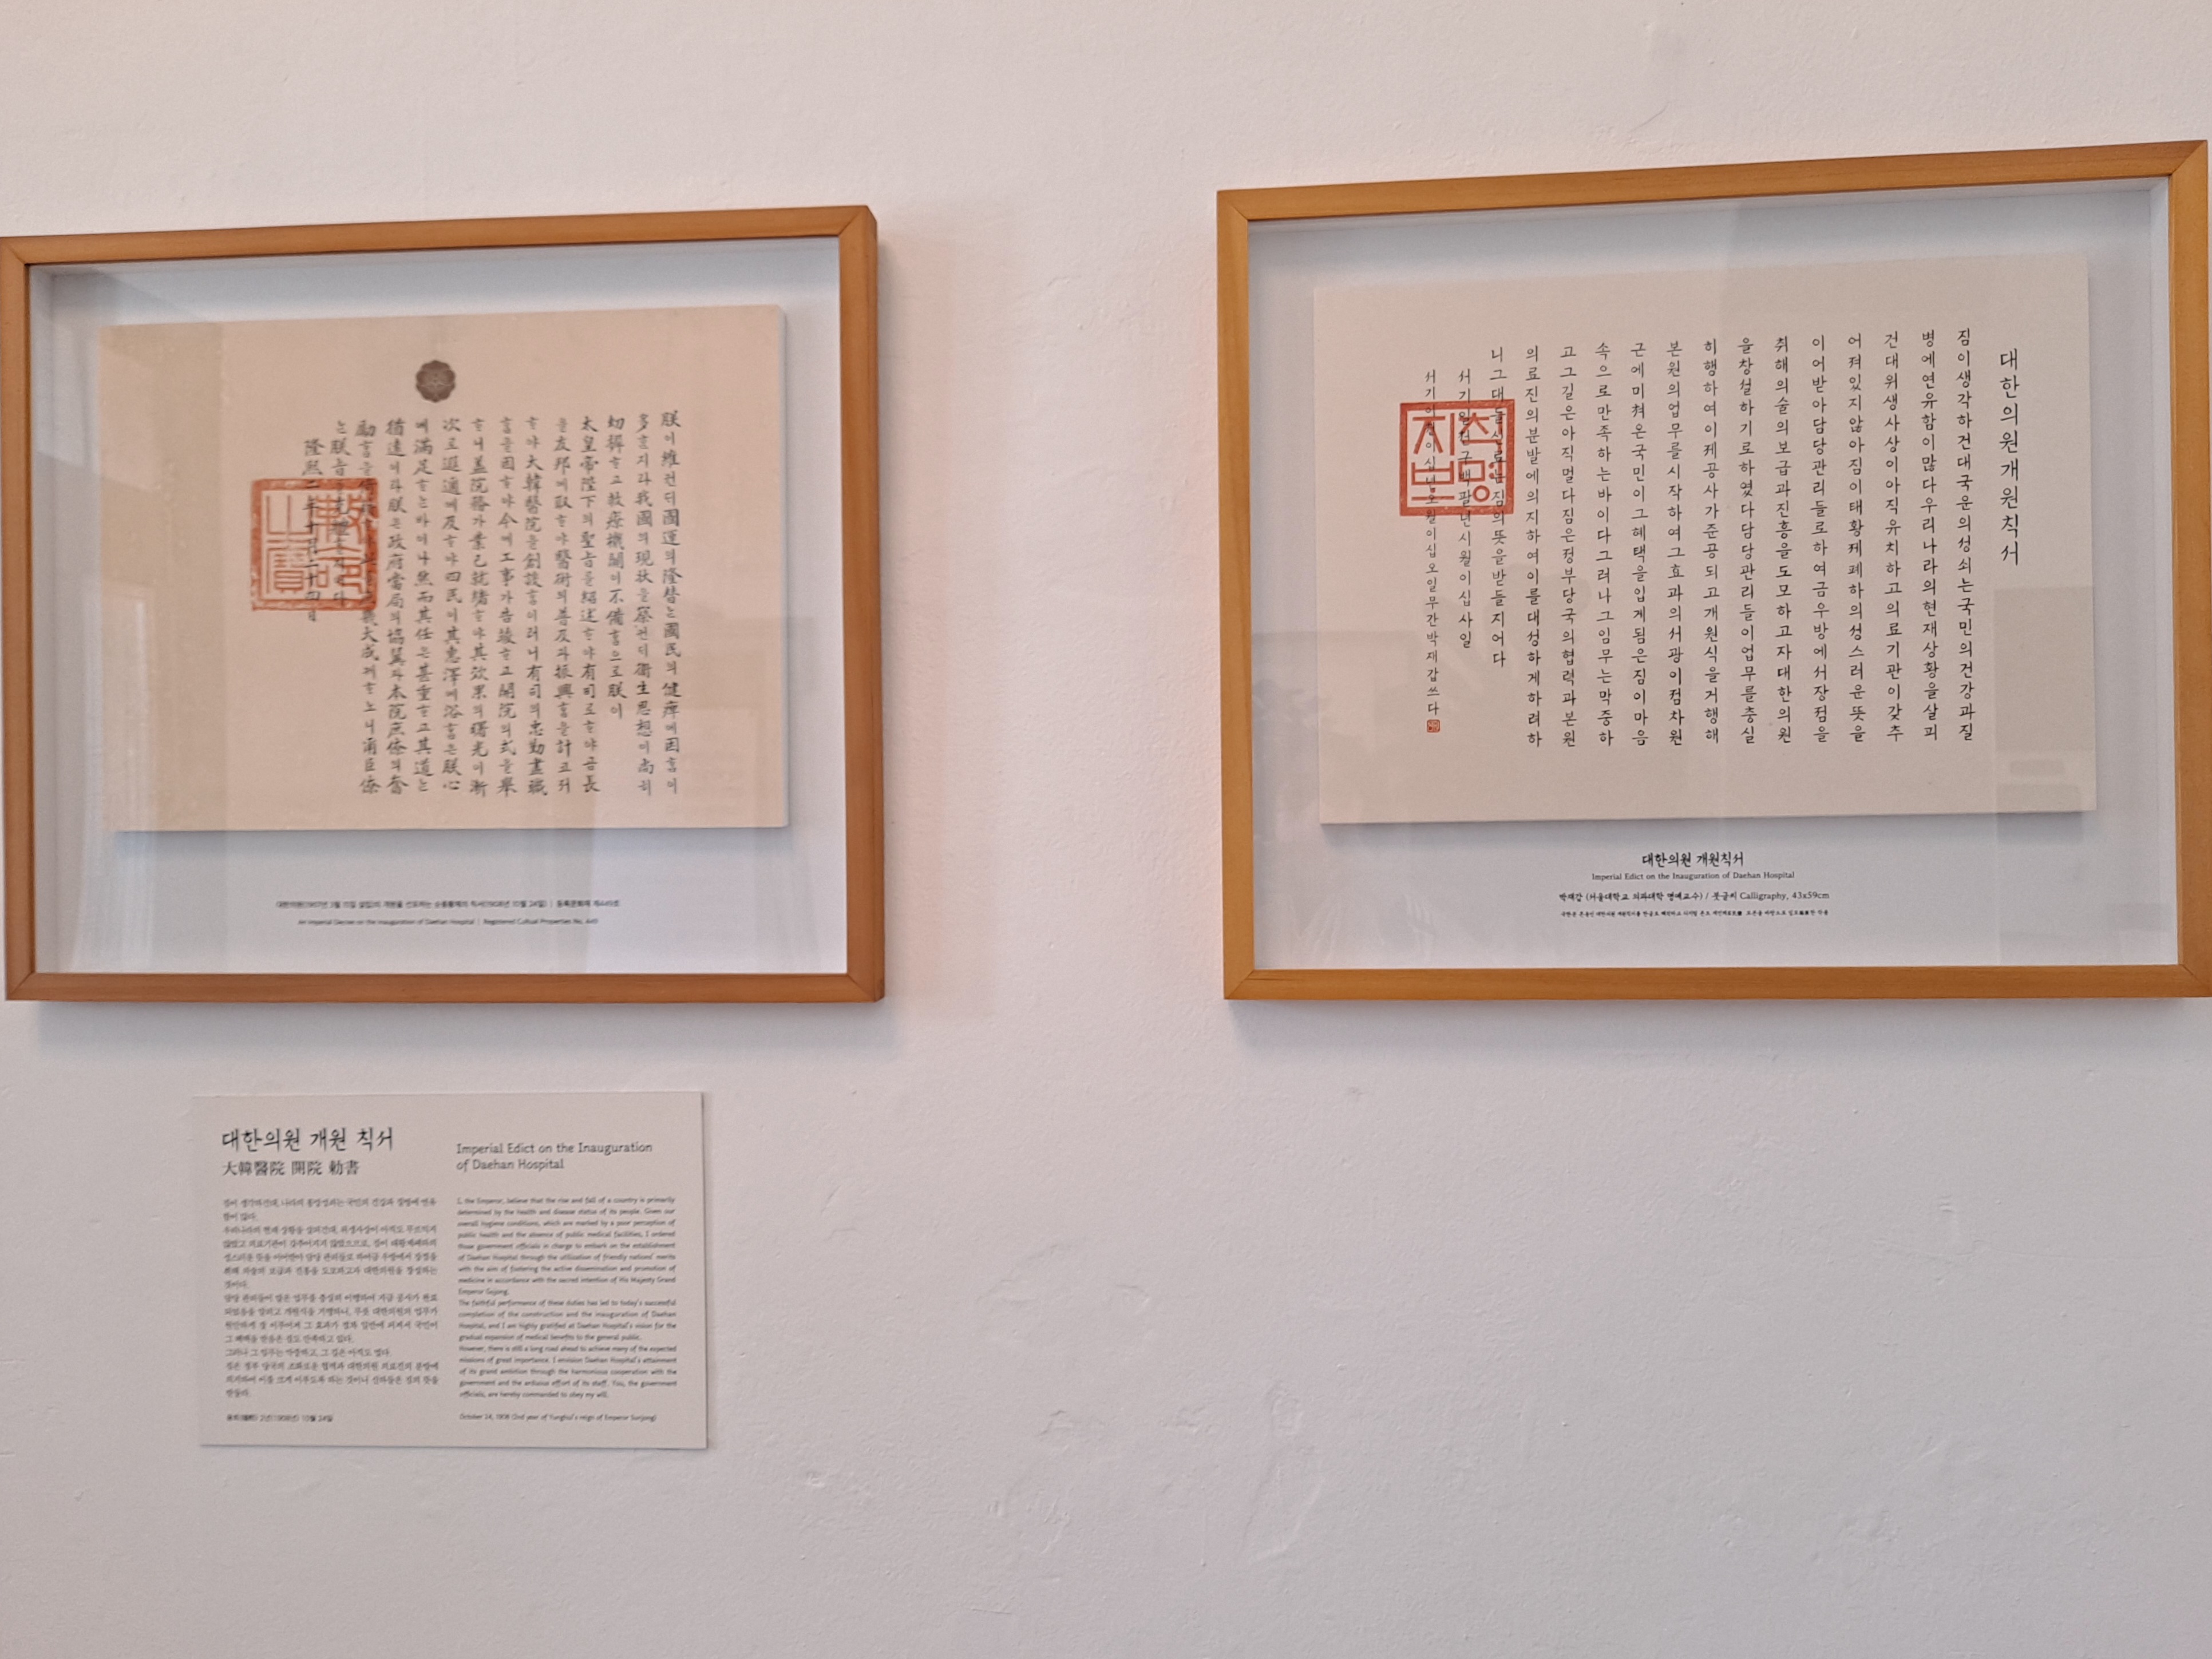 朕이維컨ᄃᆡ國運의隆替ᄂᆞᆫ國民의健瘁에因홈이
多ᄒᆞᆫ지라我國의現狀을察컨ᄃᆡ衛生思想이尙히
幼穉ᄒᆞ고救療機關이不備홈으로朕이
太皇帝陛下의聖旨를紹述ᄒᆞ야有司로ᄒᆞ야곰長
을友邦에取ᄒᆞ야醫術의普及과振興홈을計코저
ᄒᆞ야大韓醫院을創設홈이러니有司의忠勤盡職
홈을因ᄒᆞ야今에工事가告竣ᄒᆞ고開院의式을擧
ᄒᆞ니蓋院務가業已就緖ᄒᆞ야其效果의曙光이漸
次로遐邇에及ᄒᆞ야四民이其惠澤에浴홈은朕心
에滿足ᄒᆞᄂᆞᆫ바이나然而其任은甚重ᄒᆞ고其道ᄂᆞᆫ
猶遠이라朕은政府當局의協翼과本院庶僚의奮
勵홈을 大成케ᄒᆞ노니爾臣僚
ᄂᆞᆫ朕旨를
隆熙二年十月二十四日
敕命之寶
대한의원(1907년 3월 15일 설립)의 개원을 선포하는 순종황제의 칙서(1908년 10월 24일) | 등록문화재 제449호
An Imperial Decree on the Inauguration of Daehan Hospital | Registered Cultural Properties No. 449
대한의원개원칙서
짐이생각하건대국운의성쇠는국민의건강과질
병에연유함이많다우리나라의현재상황을살피
건대위생사상이아직유치하고의료기관이갖추
어져있지않아짐이태황제폐하의성스러운뜻을
이어받아담당관리들로하여금우방에서장점을
취해의술의보급과진흥을도모하고자대한의원
을창설하기로하였다담당관리들이업무를충실
히행하여이제공사가준공되고개원식을거행해
본원의업무를시작하여그효과의서광이점차원
근에미쳐온국민이그혜택을입게됨은짐이마음
속으로만족하는바이다그러나그임무는막중하
고그길은아직멀다짐은정부당국의협력과본원
의료진의분발에의지하여이를대성하게하려하
니그대들신료는짐의뜻을받들지어다
서기일천구백팔년시월이십사일
서기이천이십년오월이십오일무간박재갑쓰다
칙명지보
대한의원 개원칙서
Imperial Edict on the Inauguration of Daehan Hospital
박재갑 (서울대학교 의과대학 명예교수) / 붓글씨 Calligraphy, 43x59cm
대한의원 개원 칙서
大韓醫院 開院 勅書
짐이 생각하건대, 나라의 흥망성쇠는 국민의 건강과 질병에 연유
함이 많다.
우리나라의 현재 상황을 살피건대, 위생사상이 아직도 부르익지
않았고 의료기관이 갖추어지지 않았으므로, 짐이 태황제폐하의
성스러운 뜻을 이어받아 담당 관리들로 하여금 우방에서 장점을
취해 의술의 보급과 진흥을 도모하고자 대한의원을 창설하는
것이다.
담당 관리들이 맡은 업무를 충실히 이행하여 지금 공사가 완료
되었음을 알리고 개원식을 거행하니, 무릇 대한의원의 업무가
원만하게 잘 이루어져 그 효과가 점차 일반에 퍼져서 국민이
그 혜택을 받음은 짐도 만족하고 있다.
그러나 그 임무는 막중하고, 그 길은 아직도 멀다.
짐은 정부 당국의 조화로운 협력과 대한의원 의료진의 분발에
의지하여 이를 크게 이루도록 하는 것이니 신하들은 짐의 뜻을
받들라.
융희(隆熙) 2년(1908년) 10월 24일
Imperial Edict on the Inauguration
of Daehan Hospital
I, the Emperor, believe that the rise and fall of a country is primarily
determined by the health and disease status of its people. Given our
overall hygiene conditions, which are marked by a poor perception of
public health and the absence of public medical facilities, I ordered
those government officials in charge to embark on the establishment
of Daehan Hospital through the utilization of friendly nations' merits
with the aim of fostering the active dissemination and promotion of
medicine in accordance with the sacred intention of His Majesty Grand
Emperor Gojong.
The faithful performance of these duties has led to today's successful
completion of the construction and the inauguration of Daehan
Hospital, and I am highly gratified at Daehan Hospital's vision for the
gradual expansion of medical benefits to the general public.
However, there is still a long road ahead to achieve many of the expected
missions of great importance. I envision Daehan Hospital's attainment
of its grand ambition through the harmonious cooperation with the
government and the arduous effort of its staff. You, the government
officials, are hereby commanded to obey my will.
October 24, 1908 (2nd year of Yunghui's reign of Emperor Sunjong)